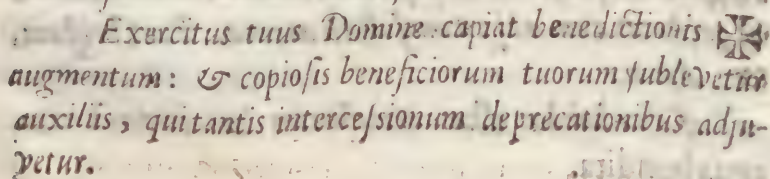 Exercitus tuus Domine capiat benedictionis ✠
augmentum: & copioſis beneficiorum tuorum ſublevetur
auxiliis, qui tantis interceſsionum deprecationibus adju-
vetur.